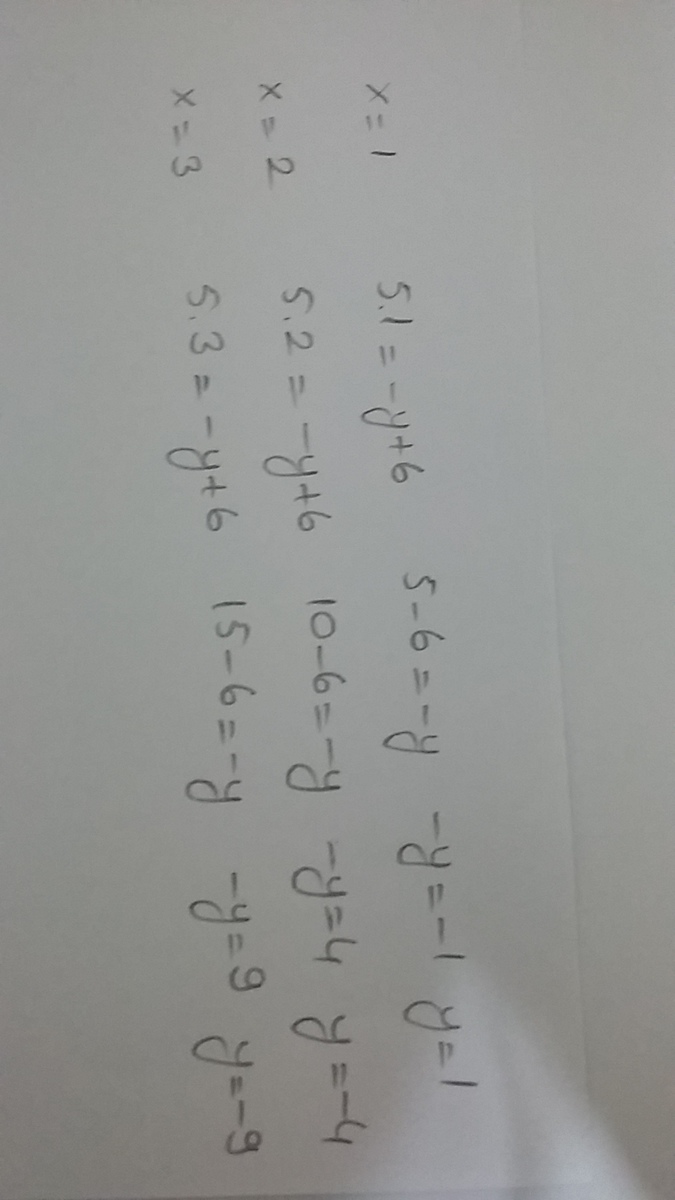 x = 1 5.1 = -y+6 5-6 = -y -y = -1 y = 1
x = 2 5.2 = -y+6 10-6 = -y -y = 4 y = -4
x = 3 5.3 = -y+6 15-6 = -y -y = 9 y = -9